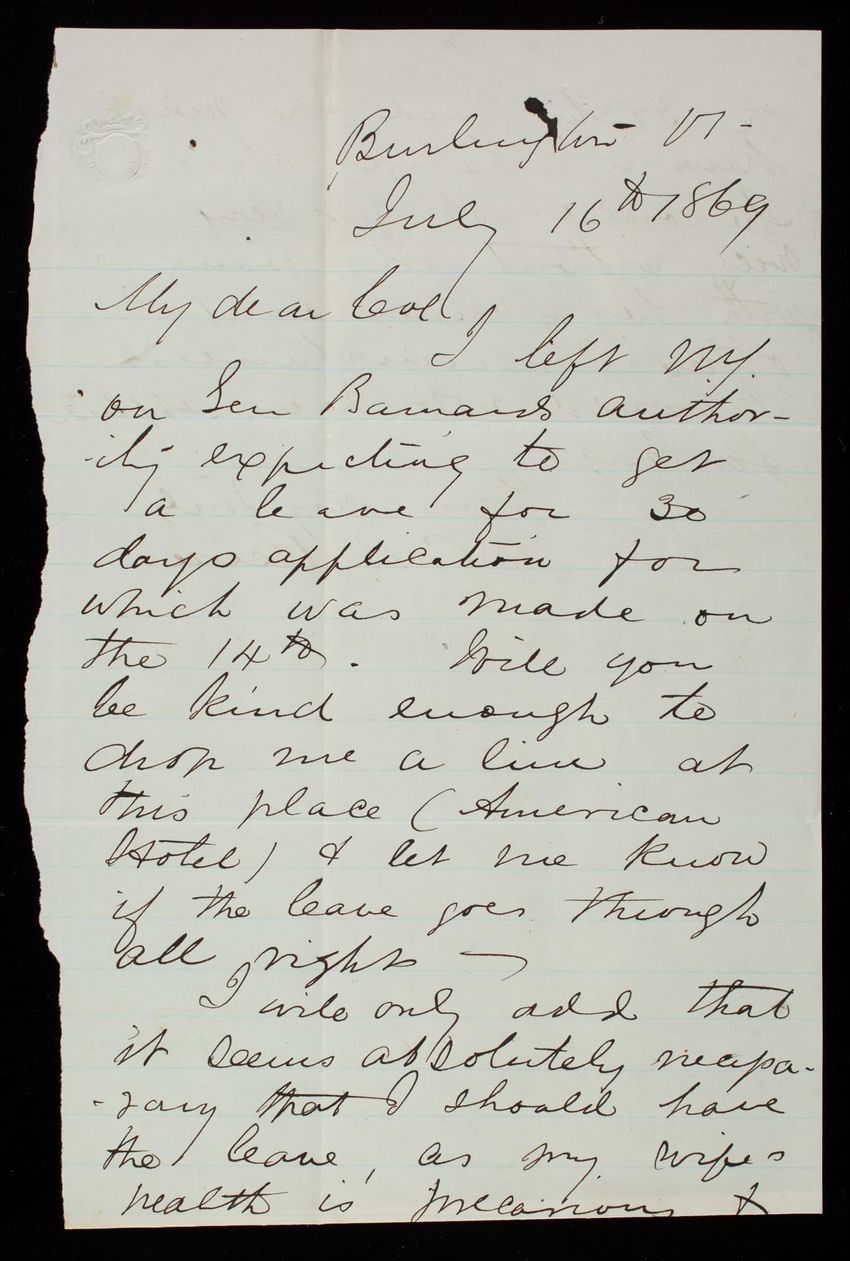 Burlington Vt-
July 16th 1869
My dear Col.
I left N.Y.
on Gen Barnards author-
-ity expecting to get
a leave for 30
days application for
which was made on
the 14th. Will you
be kind enough to
drop me a line at
this place (American
Hotel) & let me know
if the leave goes through
all right —
I will only add that
it seems absolutely necessa-
-rary that I should have
the leave, as my wife's
health is precarious &